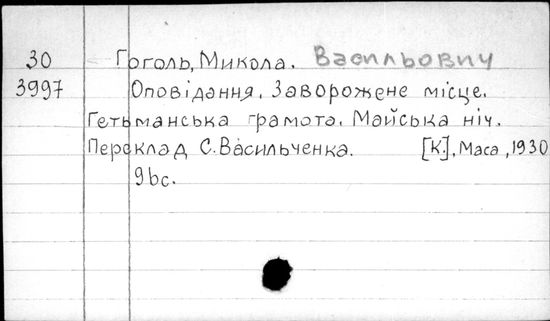 30 Гоголь, Микола. Васильович
3997 Оповідання. Заворожене місце.
Гетьманська грамота. Майська ніч.
Переклад С. Васильченка. [К.], Маса, 1930
96с.